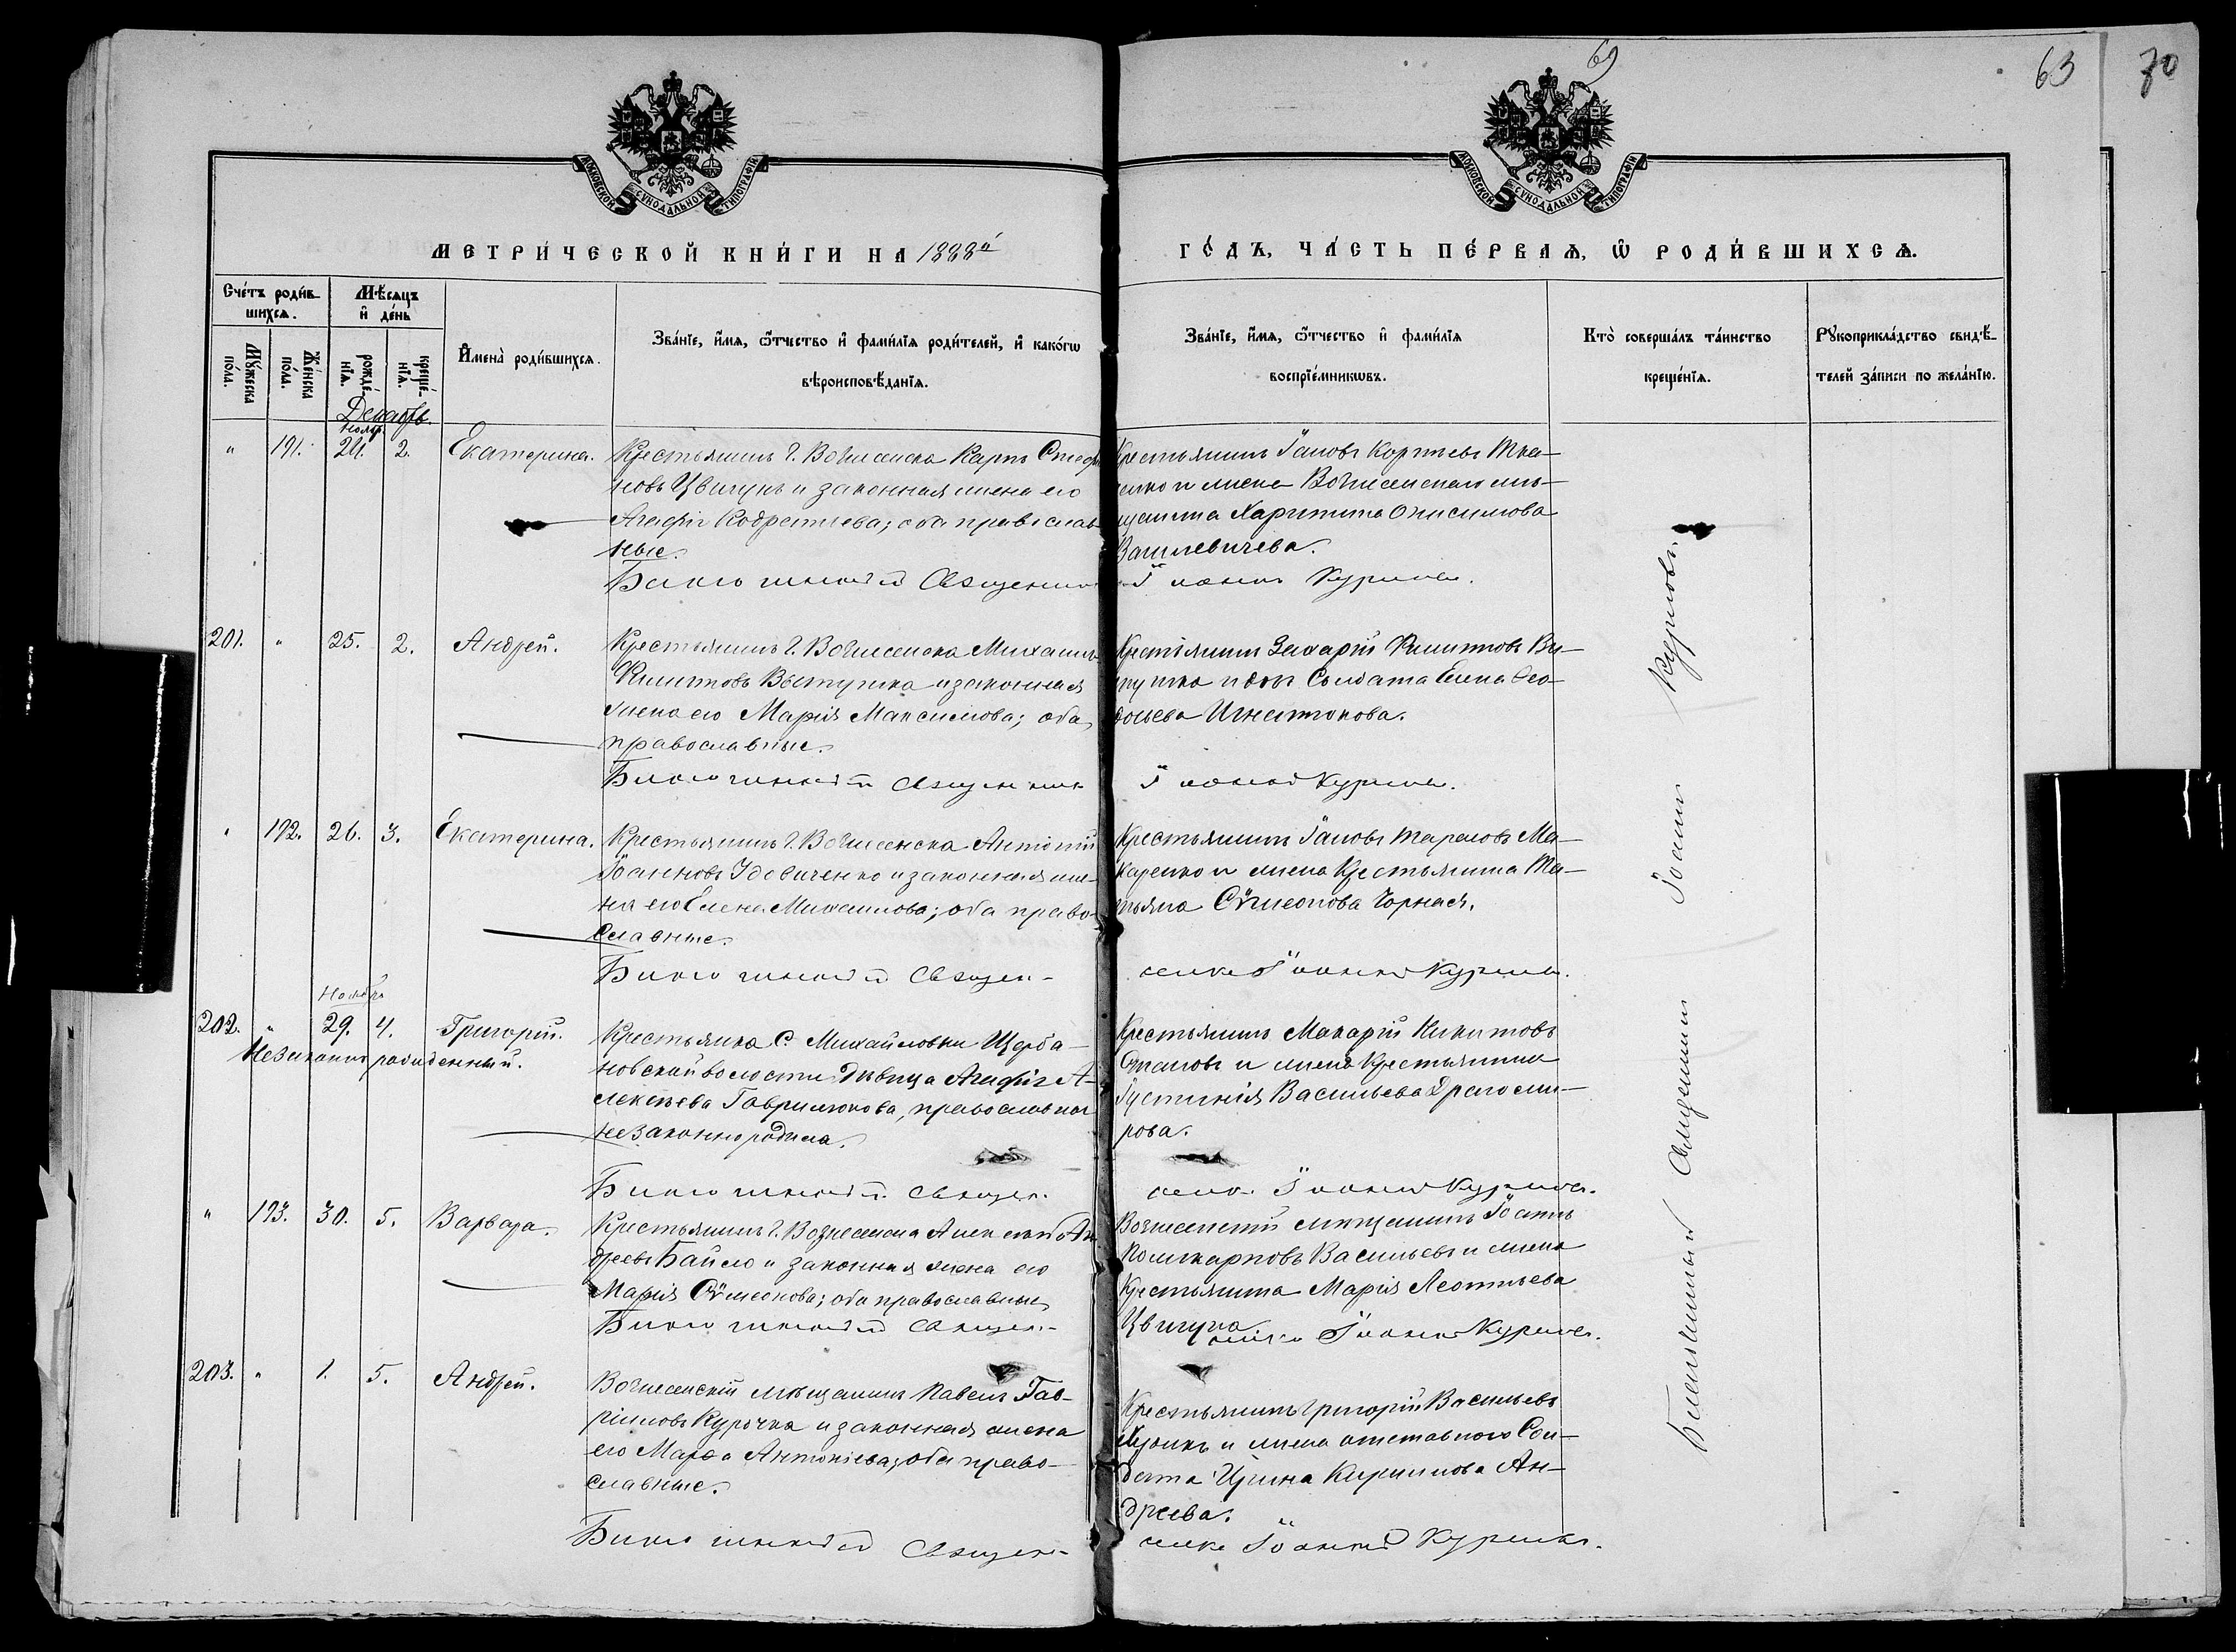 69
63
70
МОСКОВСКОЙ СѴНОДАЛЬНОЙ ТИПОГРАФІИ
МОСКОВСКОЙ СѴНОДАЛЬНОЙ ТИПОГРАФІИ
МЕТРИ́ЧЕСКОЙ КНИ́ГИ НА 1888й
ГО́ДЪ, ЧА́СТЬ ПЕ́РВАѦ, Ѿ РОДИ́ВШИХСѦ.
Сче́тъ роди́в-
шихсѧ.
Мꙋ́жеска
по́ла.
Же́нска
по́ла.
Мѣ́сѧцъ
и҆ де́нь
рожде́-
нїѧ.
креще́-
нїѧ.
И҆мена̀ роди́вшихсѧ.
Зва́нїе, и҆́мѧ, ѻ҆́тчество и҆ фами́лїѧ роди́телей, и҆ како́гѡ
вѣроисповѣ́данїѧ.
Зва́нїе, и҆́мѧ, ѻ҆́тчество и҆ фами́лїѧ
воспрїе́мникѡвъ.
Кто̀ соверша́лъ та́инство
креще́нїѧ.
Рꙋкоприкла́дство свидѣ́-
телей за́писи по жела́нїю.
Декабрь.
Ноябр.
" 191. 24. 2. Екатерина.
Крестьянинъ г. Вознесенска Карпъ Стефа
новъ Цвигунъ и законная жена его
Агафія Кодратьева; оба православ
ные.
Крестьянинъ Іаковъ
и жена Вознесенскаго мѣ-
щанина Харитина Онисимова
Василевичева.
Благочинный Священникъ Іоаннъ Куриловъ.
201. " 25. 2. Андрей.
Крестьянинъ г. Вознесенска Михаилъ
Филиповъ Выступка и законная
жена его Марія Максимова; оба
православные.
Крестьянинъ Захарій Филиповъ Вы-
ступка и дочь Солдата Елена Ѳео-
досьева Игнатюкова.
Благочинный Священникъ Іоаннъ Куриловъ.
" 192. 26. 3. Екатерина.
Крестьянинъ г. Вознесенска Антоній
Іоанновъ Удовиченко и законная же-
на его Елена Михаилова; оба право-
славные.
Крестьянинъ Іаковъ Тарасовъ Ма-
каренко и жена Крестьянина Та-
тьяна Сѵмеонова Чорная.
Благочинный Священ- никъ Іоаннъ Куриловъ.
Ноябрь
202. " 29. 4. Григорій.
Незаконнорожденный.
Крестьянка с. Михайловки Щерба-
новской волости дѣвица Агафія А-
лексѣева Гаврилюкова, православная
незаконно родила.
Крестьянинъ Макарій Никитовъ
и жена Крестьянина
Іустинія Васильева Драгоми-
рова.
Благочинный Священ- никъ Іоаннъ Куриловъ.
" 193. 30. 5. Варвара.
Крестьянинъ г. Вознесенска Алексѣй Ан
дреевъ Байло и законная жена его
Марія Сѵмеонова; оба православные
Вознесенскій мѣщанинъ Іоаннъ
Поликарповъ Васильевъ и жена
Крестьянина Марія Леонтьева
Цвигуна
Благочинный Священ- никъ Іоаннъ Куриловъ.
203. " 1. 5. Андрей.
Вознесенскій мѣщанинъ Павелъ Гав-
ріиловъ Курочка и законная жена
его Марѳа Антоніева; оба право-
славные.
Крестьянинъ Григорій Васильевъ
и жена отставного Сол-
дата Ирина Кирилова Ан-
дреева.
Благочинный Священ- никъ Іоаннъ Куриловъ.
Благочинный Священникъ Іоаннъ Куриловъ.